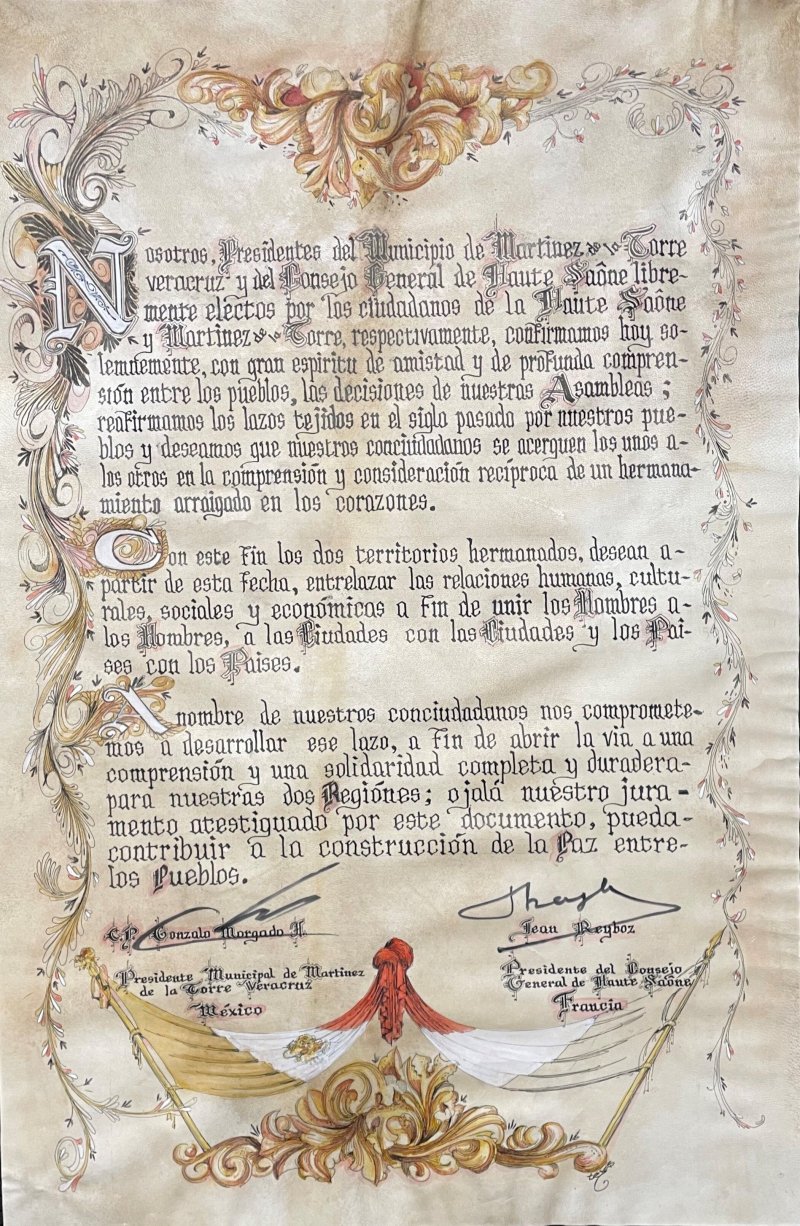 Nosotros, Presidentes del Municipio de Martinez de la Torre
veracruz y del Consejo General de Haute Saône libre-
mente electos por los ciudadanos de la Haute Saône
y Martinez de la Torre, respectivamente, confirmamos hoy so-
lemnemente, con gran espiritu de amistad y de profunda compren-
sión entre los pueblos, las decisiones de nuestras Asambleas;
reafirmamos los lazos tejidos en el siglo pasado por nuestros pue-
blos y deseamos que nuestros conciudadanos se acerquen los unos a-
los otros en la comprensión y consideración recíproca de un hermana-
miento arraigado en los corazones.
Con este fin los dos territorios hermanados, desean a-
partir de esta fecha, entrelazar las relaciones humanas, cultu-
rales, sociales y económicas a fin de unir los Hombres a-
los Hombres, a las Ciudades con las Ciudades y los Paí-
ses con los Paises.
A nombre de nuestros conciudadanos nos compromete-
mos a desarrollar ese lazo, a fin de abrir la via a una
comprensión y una solidaridad completa y duradera-
para nuestras dos Regiónes; ojalá nuestro jura-
mento atestiguado por este documento, pueda-
contribuir a la construcción de la Paz entre-
los Pueblos.
C.P. Gonzalo Morgado H.
Jean Reyboz
Presidente Municipal de Martinez
de la Torre Veracruz
México
Presidente del Consejo
General de Haute Saône
Francia